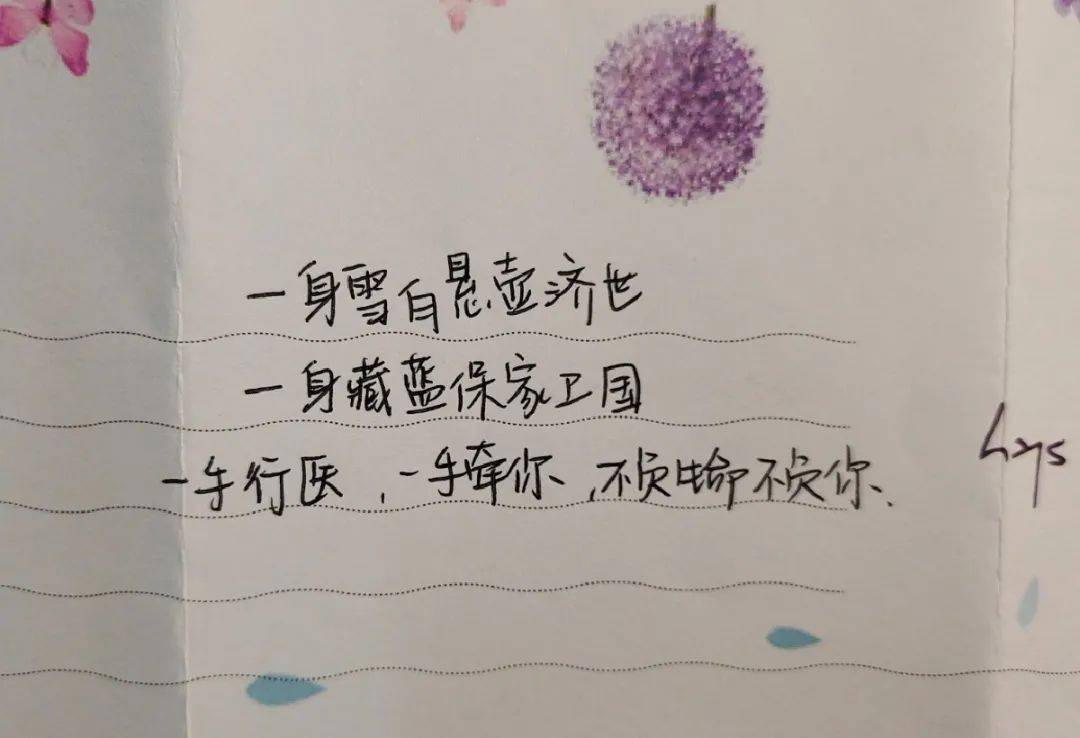 一身雪白悬壶济世
一身藏蓝保家卫国
一手行医，一手牵你，不负生命不负你、
hys